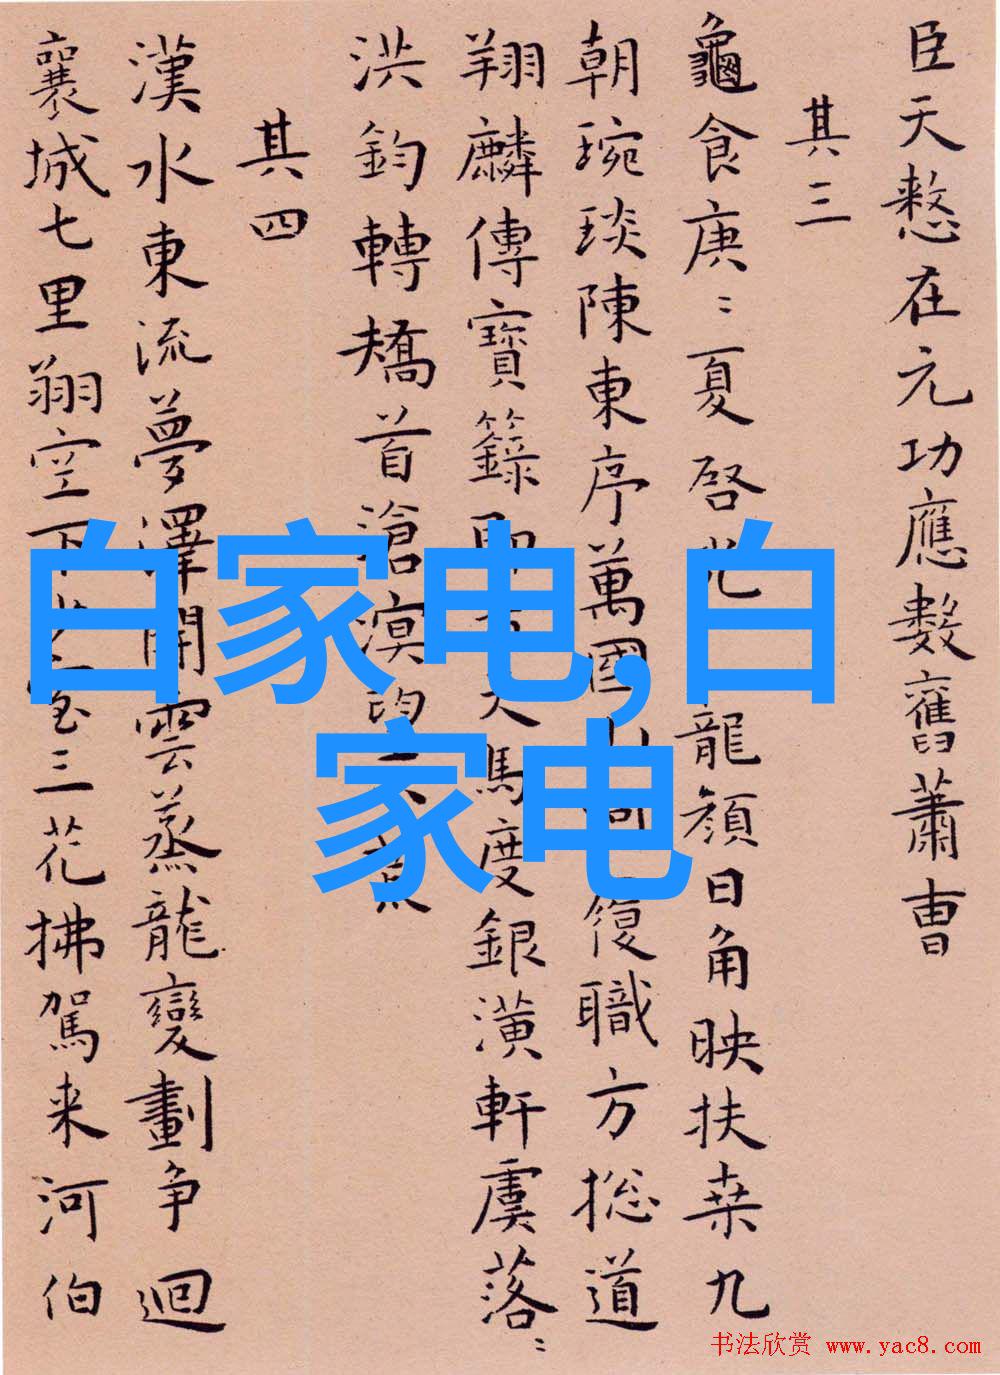 臣天憗在元功應數舊蕭曹
其三
龜食庚〻夏啓光龍顏日角映扶桒九
朝琬琰陳東序萬國山河復職方摠道
翔麟傳寶籙天馬度銀潢軒虞落〻
洪鈞轉矯首滄溟
其四
漢水東流夢澤開雲蒸龍變劃争迴
襄城七里翔空下三花拂駕来河伯
白家电,白
家电
书法欣赏 www.yac8.com